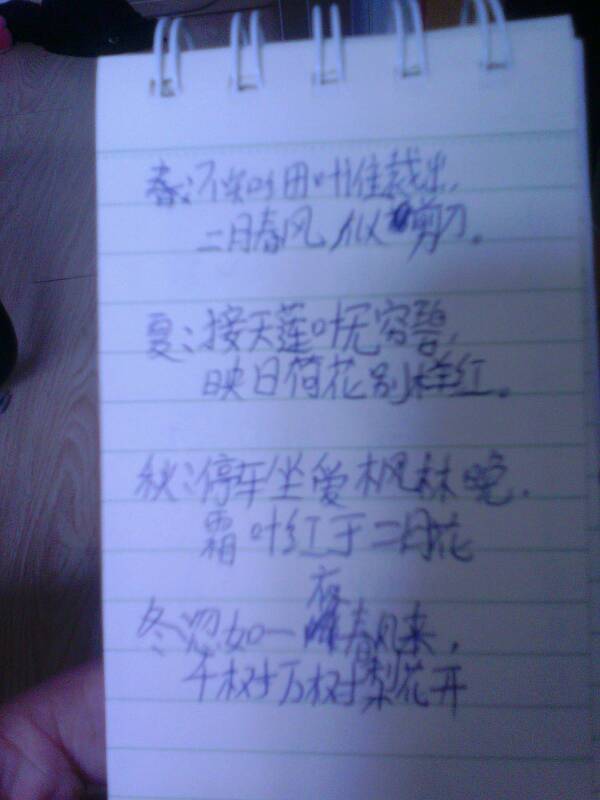 春:不知细叶谁裁出,
二月春风似剪刀。
夏:接天莲叶无穷碧,
映日荷花别样红。
秋:停车坐爱枫林晚,
霜叶红于二月花
冬:忽如一夜春风来,
千树万树梨花开